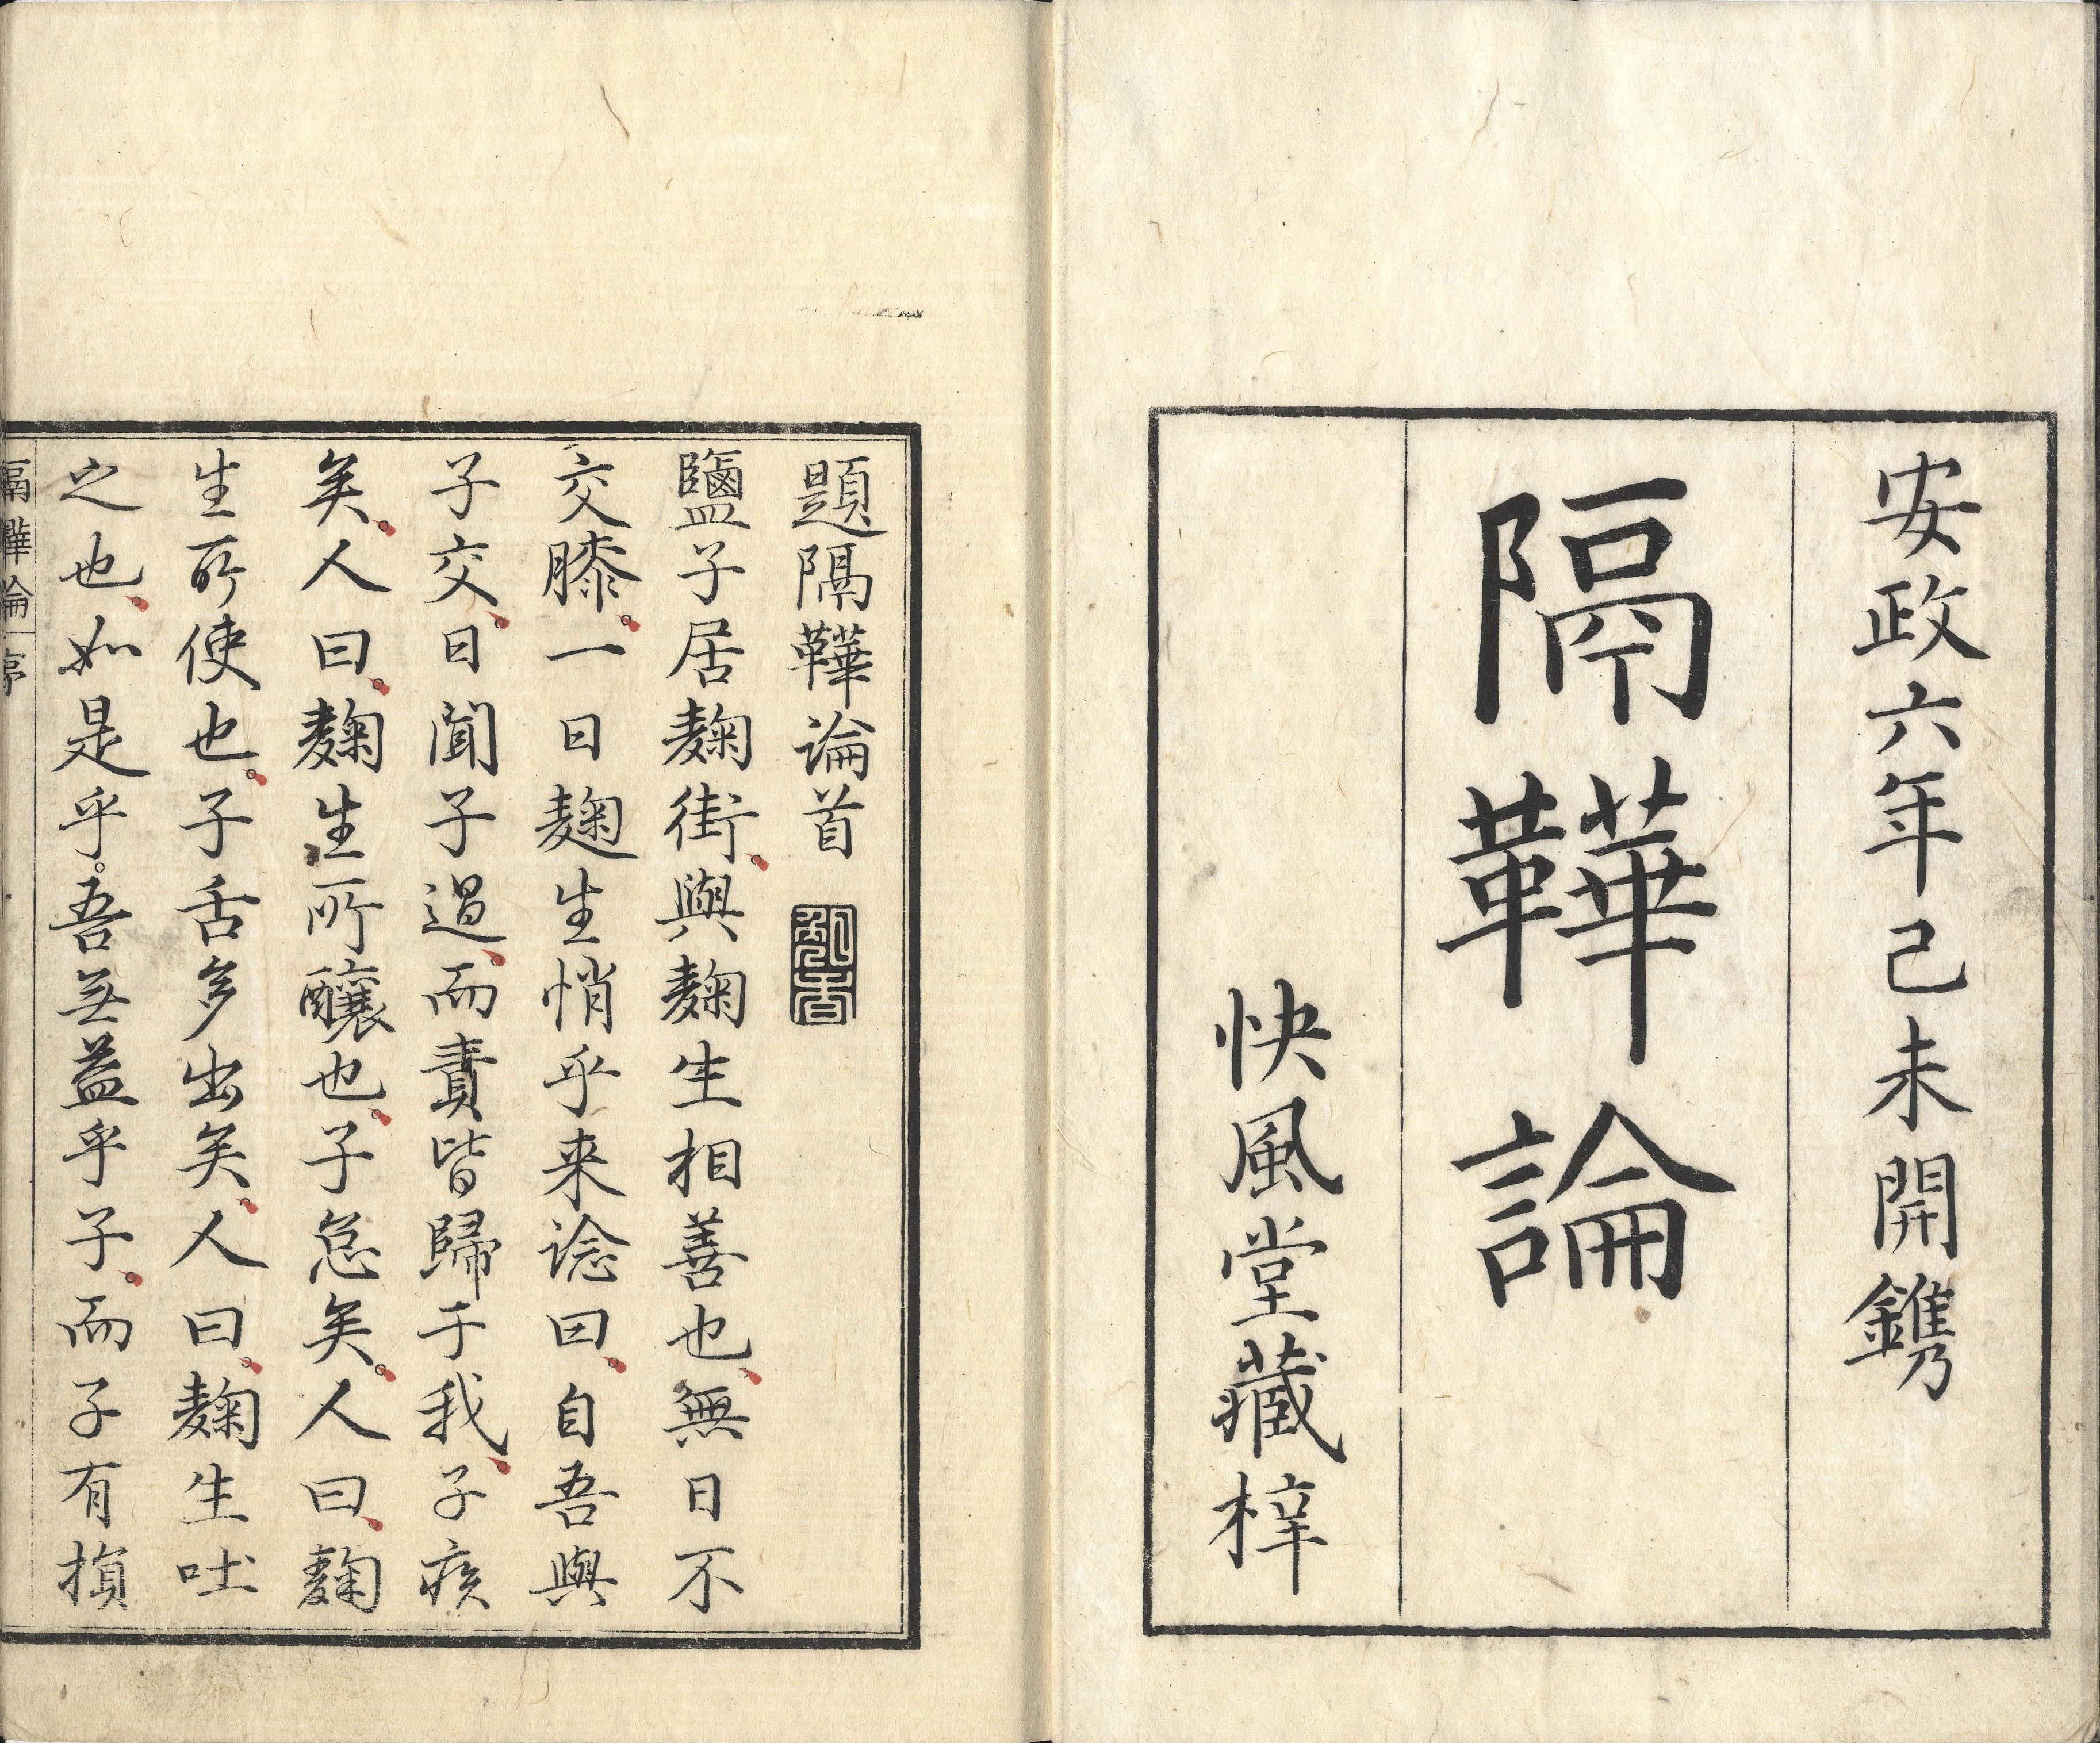 安政六年己未開鐫
隔鞾論
快風堂藏梓
題隔鞾論首
鹽子居麹街與麹生相善也無日不
交膝一日麹生悄乎来諗曰自吾與
子交日聞子過而責皆歸于我子疾
矣人曰麹生所釀也子怠矣人曰麹
生所使也子舌多出矣人曰麹生吐
之也如是乎。吾無益乎子而子有損
隔鞾論 序